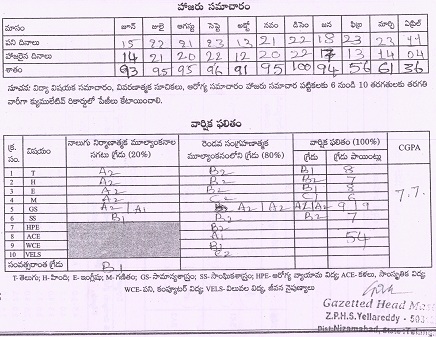 హాజరు సమాచారం
మాసం జూన్ జులై ఆగస్టు సెప్టె అక్టో నవం డిసెం జన ఫిబ్ర మార్చి ఏప్రిల్
పని దినాలు 15 22 21 23 13 21 22 18 23 23 11
హాజరైన దినాలు 14 21 20 22 12 20 22 17 13 14 04
శాతం 93 95 95 96 91 95 100 94 56 61 36
సూచన: విద్యా విషయక సమాచారం, వివరణాత్మక సూచికలు, ఆరోగ్య సమాచారం హాజరు సమాచార పట్టికలకు 6 నుండి 10 తరగతులకు తరగతి
వారీగా క్యుములేటివ్ రికార్డులో పేజీలు కేటాయించాలి.
వార్షిక ఫలితం
క్ర. సం. విషయం నాలుగు నిర్మాణాత్మక మూల్యాంకనాల సగటు గ్రేడు (20%) రెండవ సంగ్రహణాత్మక మూల్యాంకనంలోని గ్రేడు (80%) వార్షిక ఫలితం (100%) గ్రేడు గ్రేడు పాయింట్లు CGPA
1 T A2 B2 B1 8
2 H A2 B2 B2 7
3 E A2 B2 B1 8
4 M A2 C1 C1 6
5 GS A2 A1 A2 A2 A2 A2 9 9
6 SS B1 B2 B2 7
7.7.
7 HPE B2
8 ACE A1 54
9 WCE B1
10 VELS C2
సంవత్సరాంత గ్రేడు B1
T- తెలుగు; H-హిందీ; E- ఇంగ్లీషు; M- గణితం; GS- సామాన్యశాస్త్రం; SS- సాంఘికశాస్త్రం; HPE- ఆరోగ్య వ్యాయామ విద్య; ACE- కళలు, సాంస్కృతిక విద్య;
WCE-పని, కంప్యూటర్ విద్య; VELS-విలువల విద్య, జీవన నైపుణ్యాలు
Gazetted Head
Z.P.H.S.Yellareddy - 503
Dist:Nizamabad, State :Telang